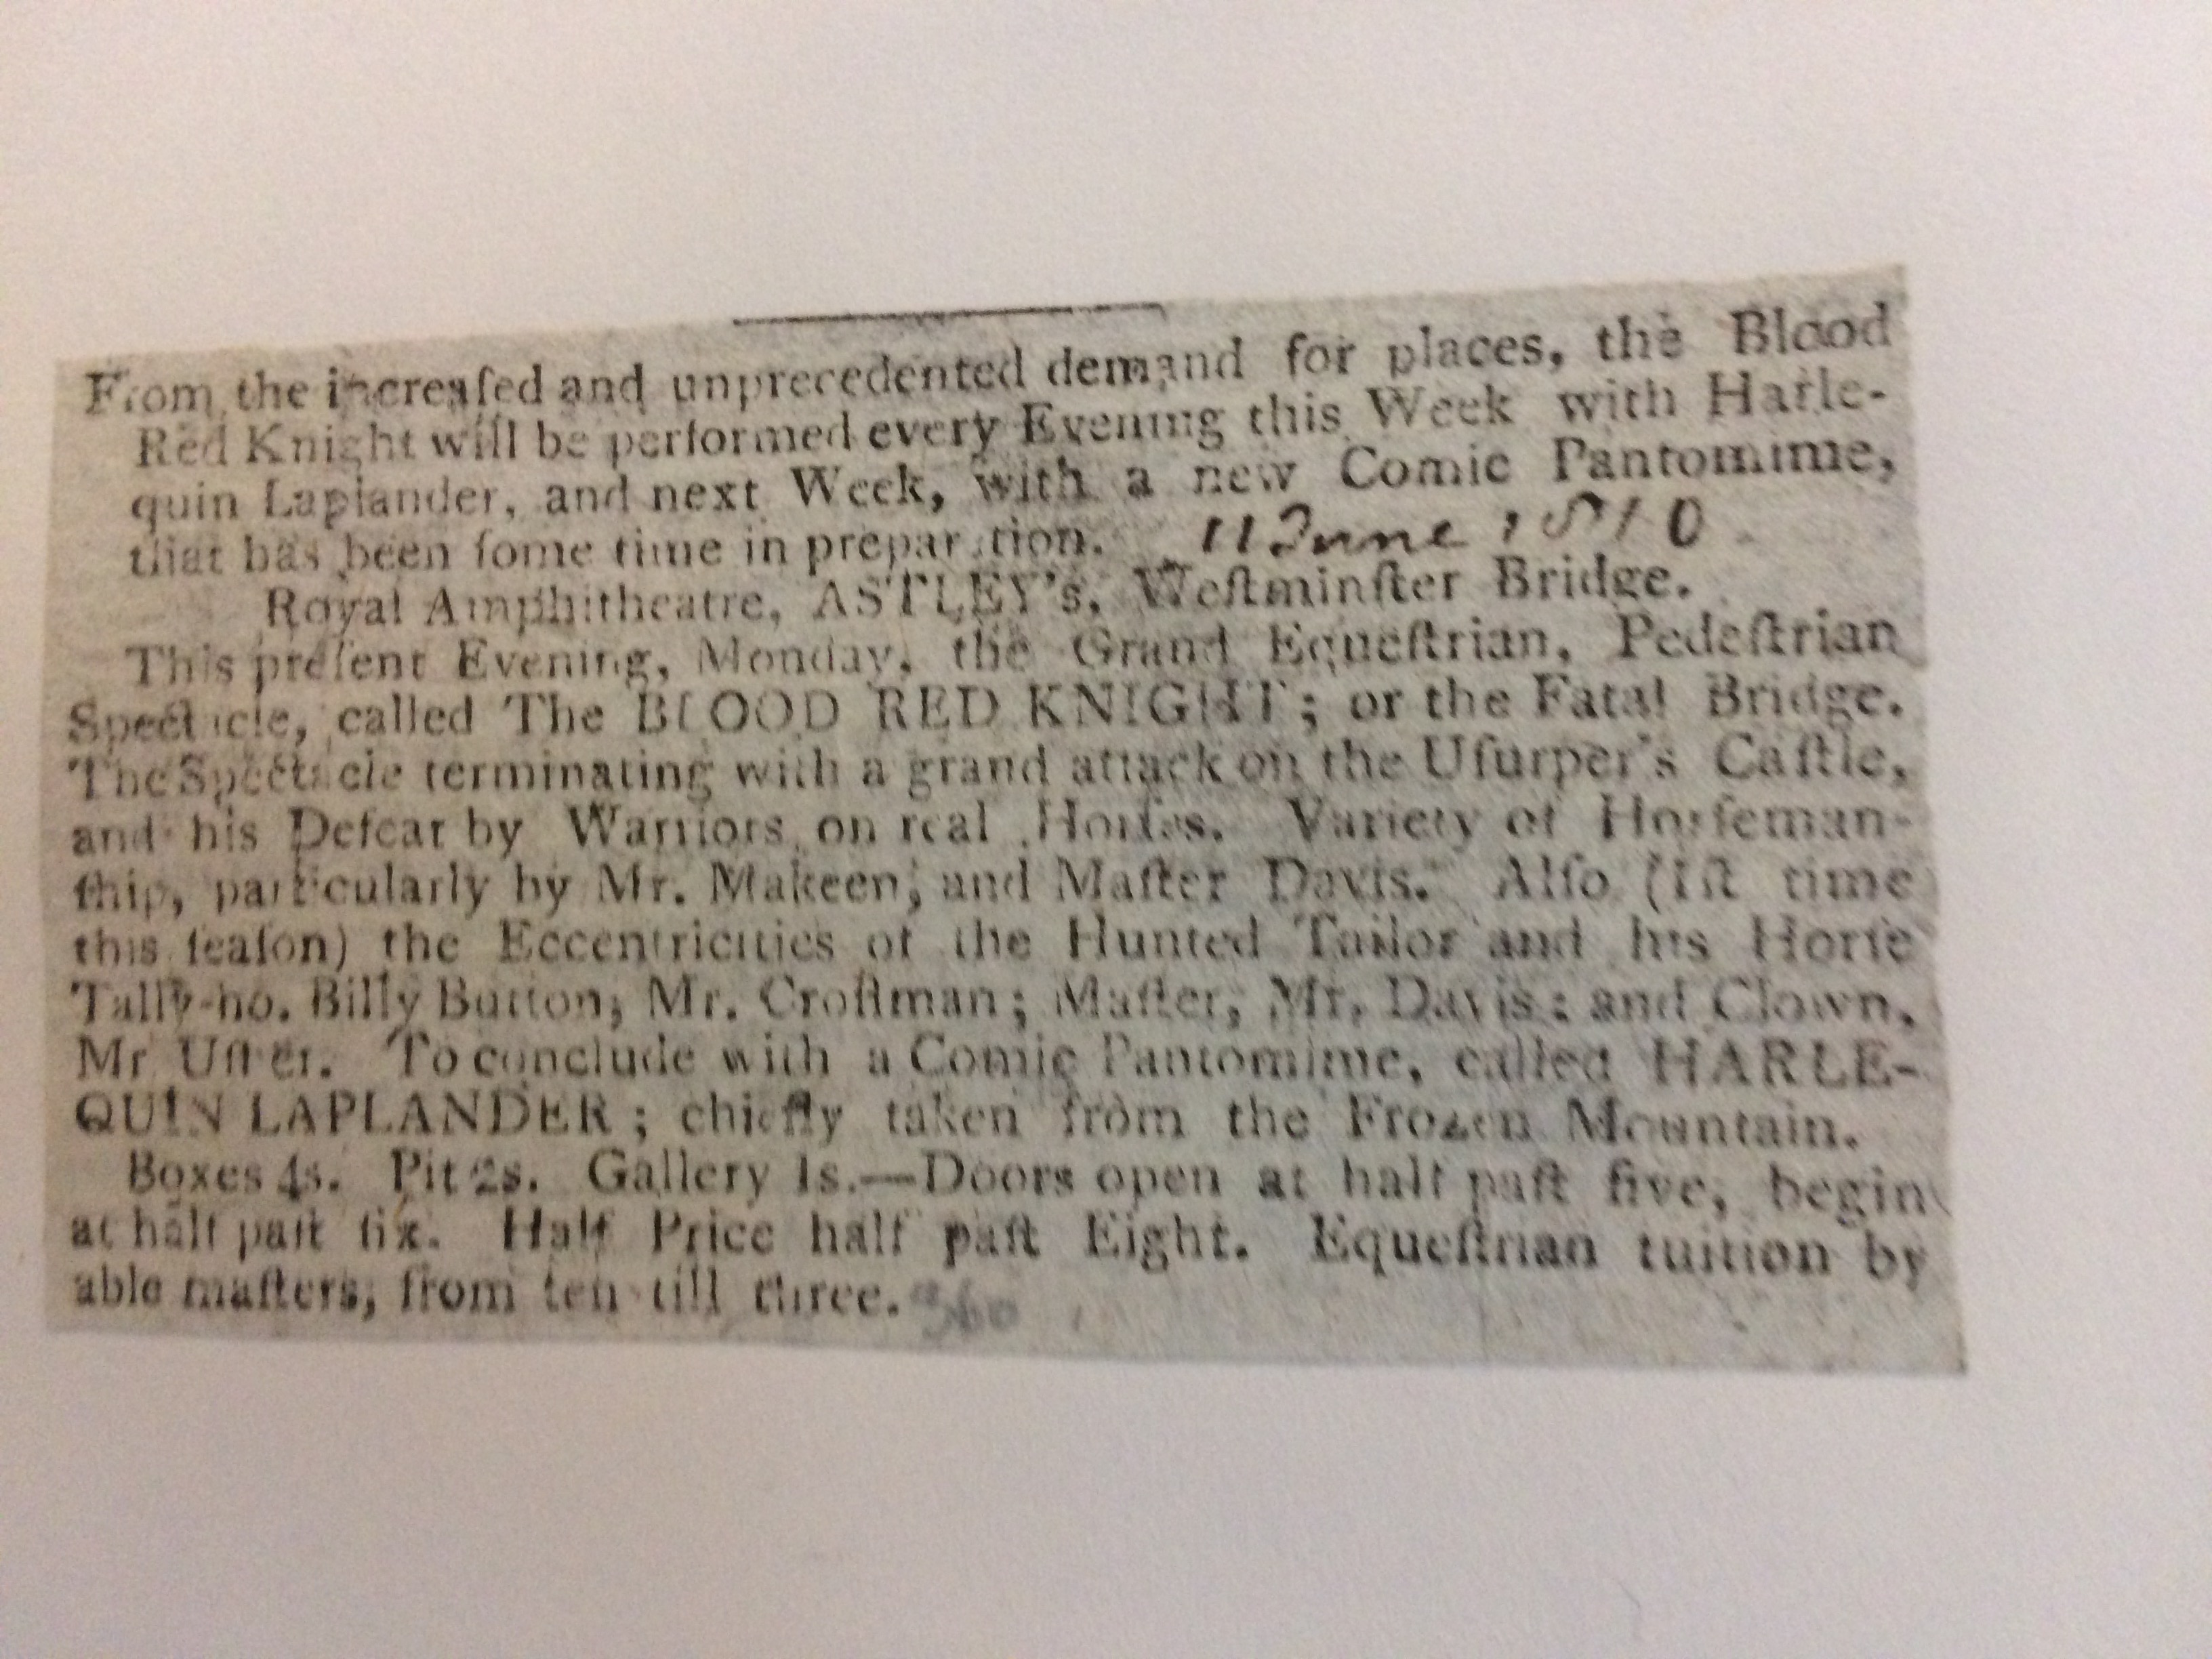 From the increaſed and unprecedented demand for places, the Blood
Red Knight will be performed every Evening this Week with Harle-
quin Laplander, and next Week, with a new Comic Pantomime,
that has been ſome time in preparation. 11 June 1810
Royal Amphitheatre, ASTLEY's, Weſtminſter Bridge.
This preſent Evening, Monday, the Grand Equeſtrian, Pedeſtrian
Spectacle, called The BLOOD RED KNIGHT; or the Fatal Bridge.
The Spectacle terminating with a grand attack on the Uſurper's Caſtle,
and his Defeat by Warriors on real Horſes. Variety of Horſeman-
ſhip, particularly by Mr. Makeen, and Maſter Davis. Alſo (1ſt time
this ſeaſon) the Eccentricities of the Hunted Tailor and his Horſe
Tally-ho. Billy Button, Mr. Croſſman; Maſter, Mr. Davis; and Clown,
Mr. Uſher. To conclude with a Comic Pantomime, called HARLE-
QUIN LAPLANDER; chiefly taken from the Frozen Mountain.
Boxes 4s. Pit 2s. Gallery 1s.—Doors open at half paſt five, begin
at half paſt ſix. Half Price half paſt Eight. Equeſtrian tuition by
able maſters, from ten till three. 360